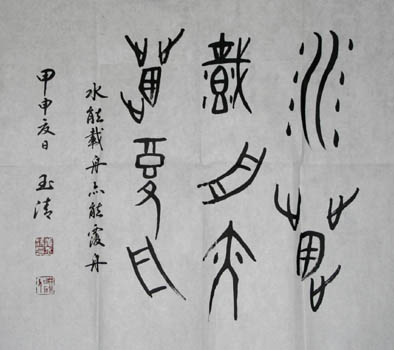 水能
載舟亦
能覆舟
水能載舟亦能覆舟
甲申夏日 玉清